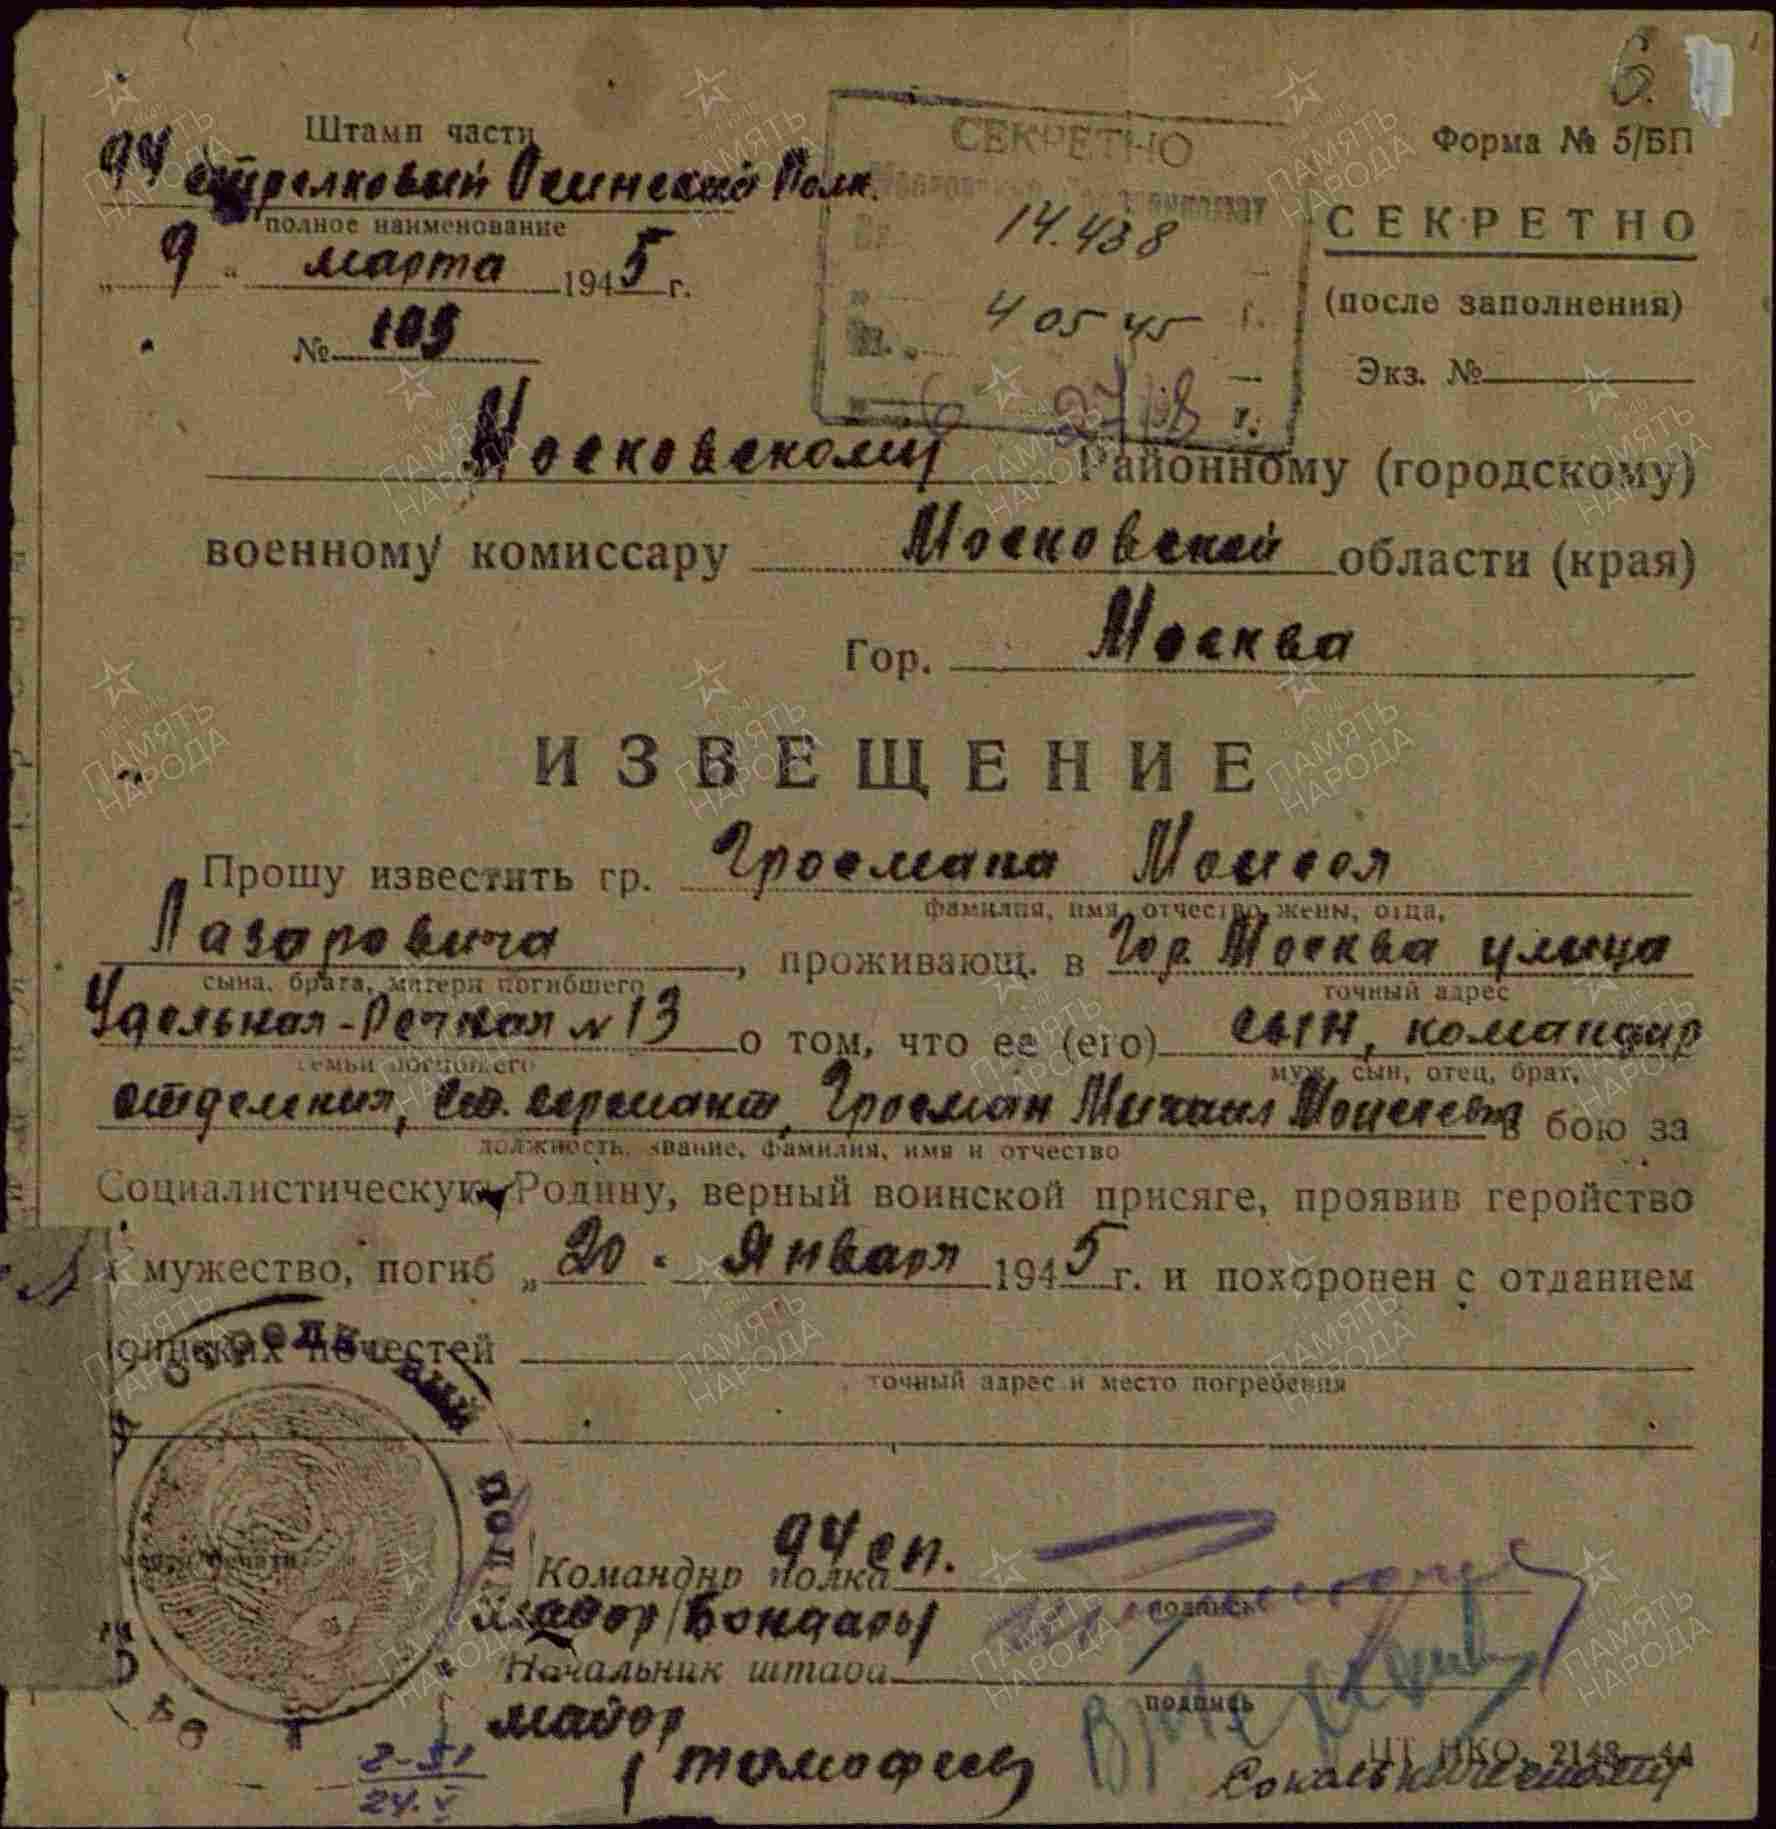 6.
Штамп части
94 стрелковый Осинский Полк.
полное наименование
„ 9 “ марта 1945 г.
№ 109
СЕКРЕТНО
14.438
4 05 45 г.
27 г.
Форма № 5/БП
СЕКРЕТНО
(после заполнения)
Экз. №
Московскому Районному (городскому)
военному комиссару Московской области (края)
Гор. Москва
ИЗВЕЩЕНИЕ
Прошу известить гр. Гросмана Моисея
фамилия, имя, отчество жены, отца,
Лазаровича, проживающ. в Гор. Москва улица
сына, брата, матери погибшего
точный адрес
Удельная-Речная № 13 о том, что ее (его) сын, командир
семьи погибшего
муж, сын, отец, брат,
отделения, ст. сержант, Гросман Михаил Моисеевич в бою за
должность, звание, фамилия, имя и отчество
Социалистическую Родину, верный воинской присяге, проявив геройство
мужество, погиб „ 20 “ Января 1945 г. и похоронен с отданием
воинских почестей
точный адрес и место погребения
стрелковый полк
94 сп.
Командир полка
подпись
майор /Бондарь/
Начальник штаба
подпись
майор
/Тимофеев/
2-51
24.V
ЦТ НКО. 2148—44
Сокольническому
ПАМЯТЬ НАРОДА